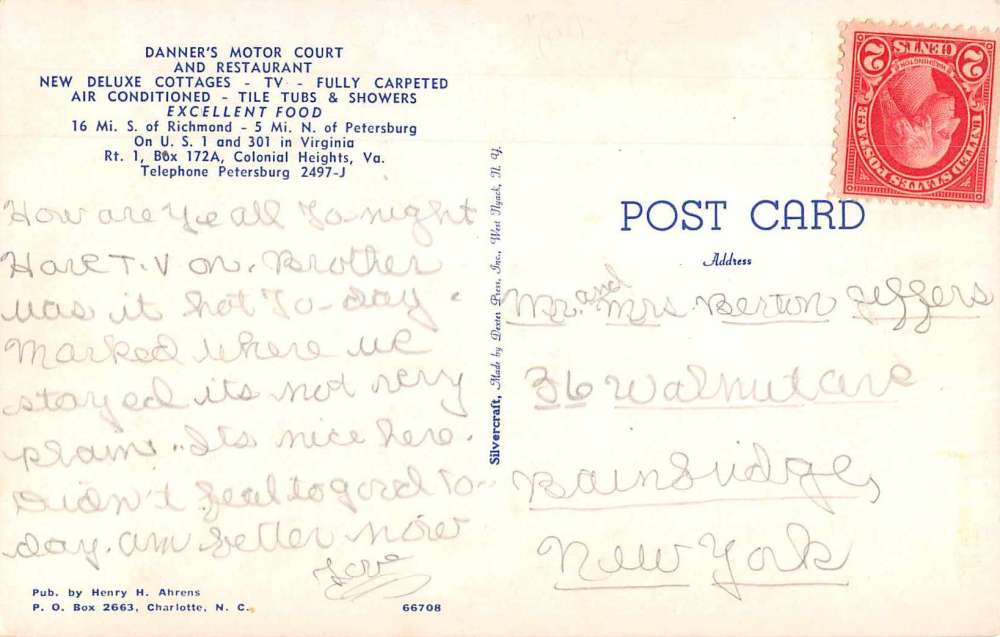 DANNER'S MOTOR COURT
AND RESTAURANT
NEW DELUXE COTTAGES - TV - FULLY CARPETED
AIR CONDITIONED - TILE TUBS & SHOWERS
EXCELLENT FOOD
16 Mi. S. of Richmond - 5 Mi. N. of Petersburg
On U. S. 1 and 301 in Virginia
Rt. 1, Box 172A, Colonial Heights, Va.
Telephone Petersburg 2497-J
How are ye all To-night
Have T.V on. Brother
was it hot To-day.
Marked where we
stayed its not very
plain.. Its nice here.
Didn't feel to good To-
day. am better now
Love
Pub. by Henry H. Ahrens
P. O. Box 2663, Charlotte, N. C.
66708
Silvercraft, Made by Dexter Press, Inc., West Nyack, N. Y.
UNITED STATES POSTAGE
WASHINGTON
2 CENTS 2
POST CARD
Address
Mr. and Mrs. Berton Jeffers
36 Walnut ave
Bainbridge,
New York